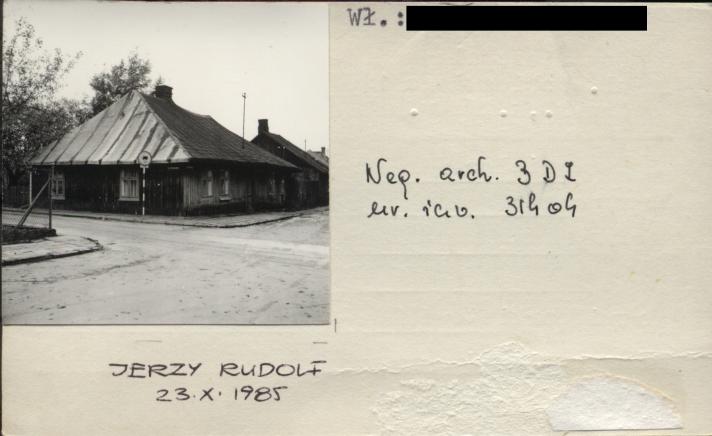 WŁ.:
Neg. arch. 3 D Z
nr. inw. 31404
JERZY RUDOLF
23.X.1985